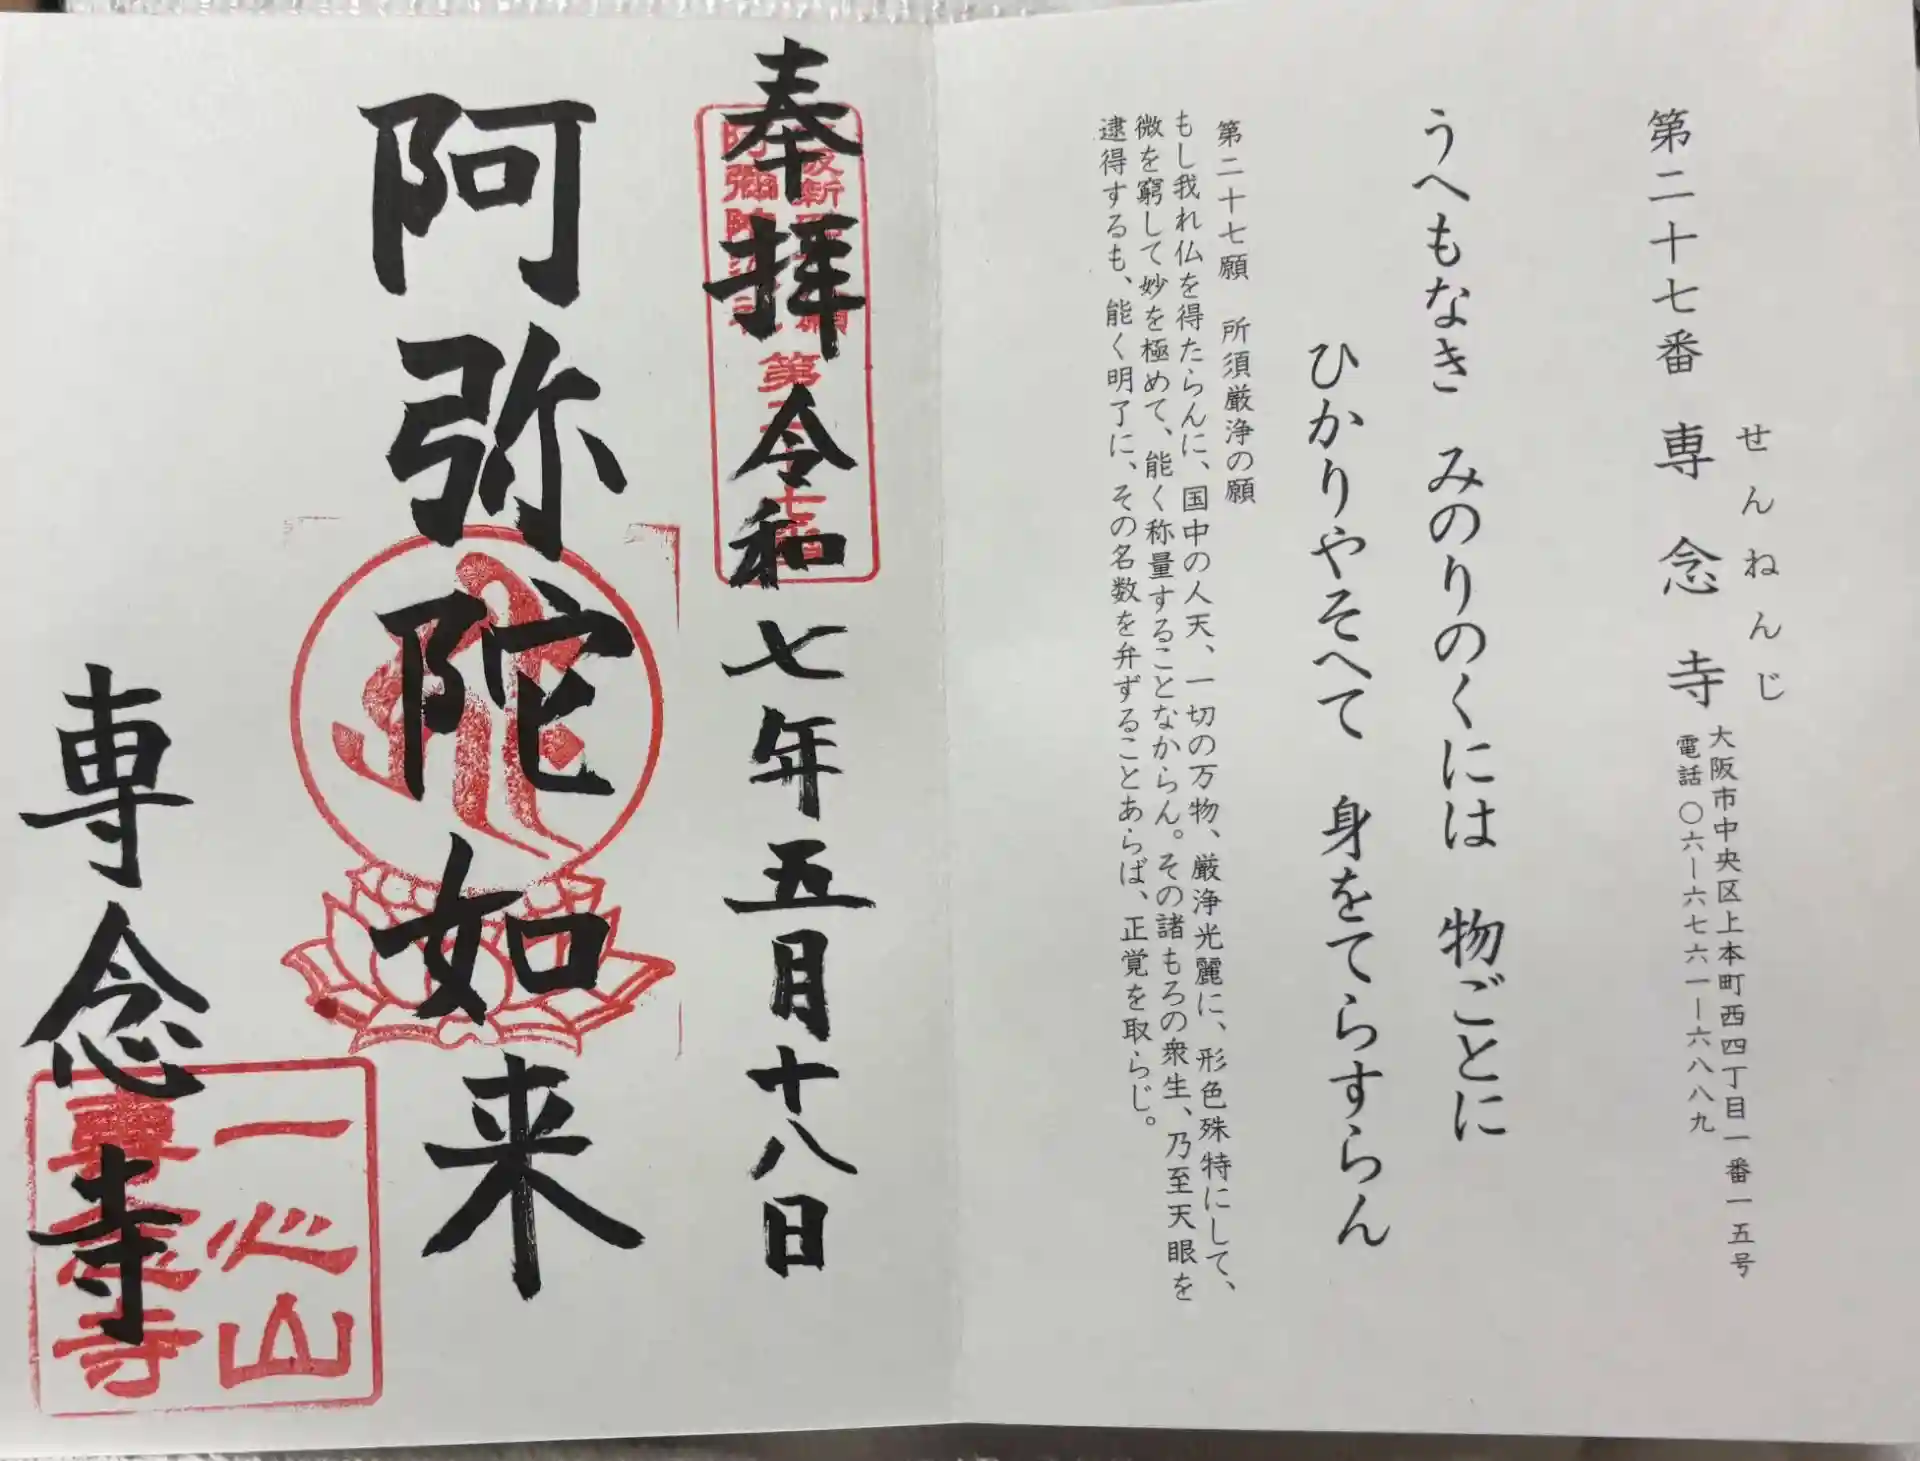 第二十七番 専念寺
せんねんじ
大阪市中央区上本町西四丁目一番一五号
電話〇六ー六七六一ー六八八九
うへもなき みのりのくには 物ごとに
ひかりやそへて 身をてらすらん
第二十七願 所須厳浄の願
もし我れ仏を得たらんに、国中の人天、一切の万物、厳浄光麗に、形色殊特にして、
微を窮して妙を極めて、能く称量することなからん。その諸もろの衆生、乃至天眼を
逮得するも、能く明了に、その名数を弁ずることあらば、正覚を取らじ。
奉拝 令和七年五月十八日
阿弥陀如来
専念寺
一心山
專念寺